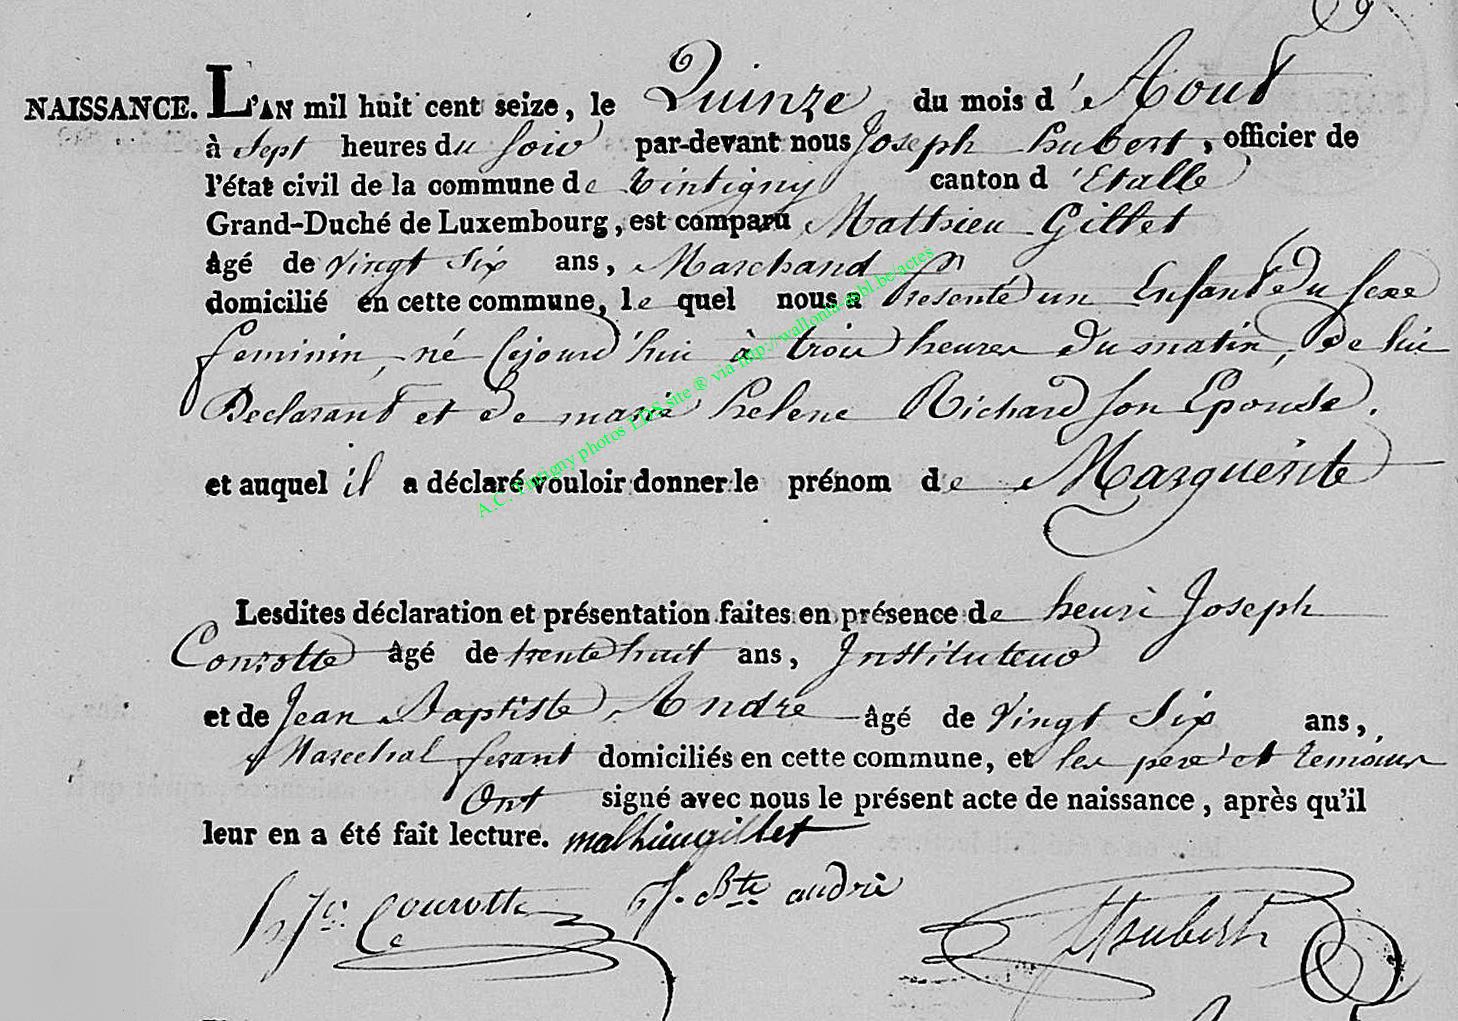 NAISSANCE. L'AN mil huit cent seize, le Quinze du mois d'Aout
à Sept heures du soir par-devant nous Joseph hubert, officier de
l'état civil de la commune de tintigny canton d'Etalle
Grand-Duché de Luxembourg, est comparu Mathieu Gillet
âgé de vingt Six ans, Marchand
domicilié en cette commune, le quel nous a Presenté un Enfant Du sexe
feminin, né Cejourd'hui à trois heures Du matin, De lui
Declarant et De marie helene Richard son Epouse.
et auquel il a déclaré vouloir donner le prénom de Marguerite
Lesdites déclaration et présentation faites en présence de henri Joseph
Conrotte âgé de trente huit ans, Instituteur
et de Jean Baptiste Andre âgé de Vingt Six ans,
Marechal ferant domiciliés en cette commune, et les pere et temoins
Ont signé avec nous le présent acte de naissance, après qu'il
leur en a été fait lecture. mathieu gillet
h Jh Conrotte J. Bte andrè Hubert
A.C. Tintigny photos LDS site ® via http://wallonia-asbl.be/actes